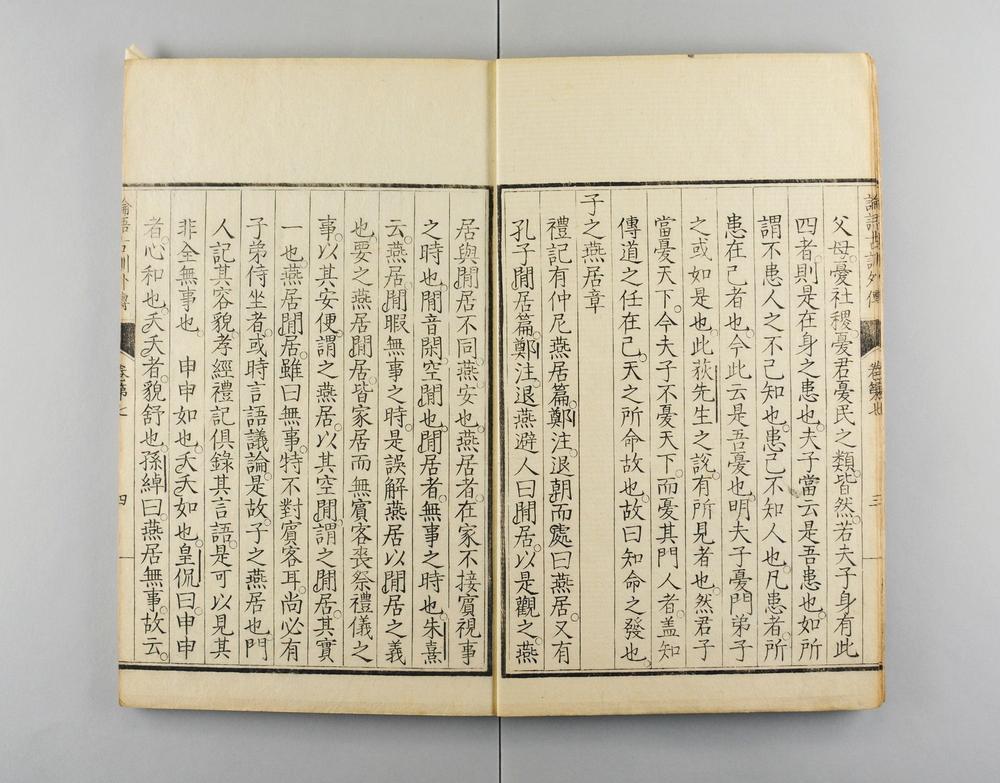 論語古訓外傳 卷第七 三
父母。憂社稷。憂君憂民之類。皆然。若夫子身有此
四者。則是在身之患也。夫子當云是吾患也。如所
謂不患人之不己知也。患己不知人也。凡患者。所
患在己者也。今此云是吾憂也。明夫子憂門弟子
之或如是也。此荻先生之說。有所見者也。然君子
當憂天下。今夫子不憂天下。而憂其門人者。盖知
傳道之任在己。天之所命故也。故曰知命之發也
子之燕居章
禮記有仲尼燕居篇。鄭注。退朝而處曰燕居。又有
孔子閒居篇。鄭注。退燕避人曰閒居。以是觀之。燕
居與閒居不同。燕安也。燕居者。在家不接賓視事
之時也。閒音閑。空閒也。閒居者。無事之時也。朱熹
云。燕居。閒暇無事之時。是誤解燕居以閒居之義
也。要之燕居閒居。皆家居而無賓客喪祭禮儀之
事。以其安便。謂之燕居。以其空閒。謂之閒居。其實
一也。燕居閒居。雖曰無事。特不對賓客耳。尚必有
子弟侍坐者。或時言語議論。是故子之燕居也。門
人記其容貌。孝經禮記俱錄其言語。是可以見其
非全無事也。 申申如也。夭夭如也。皇侃曰。申申
者。心和也。夭夭者。貌舒也。孫綽曰。燕居無事。故云。
論語古訓外傳 卷第七 四